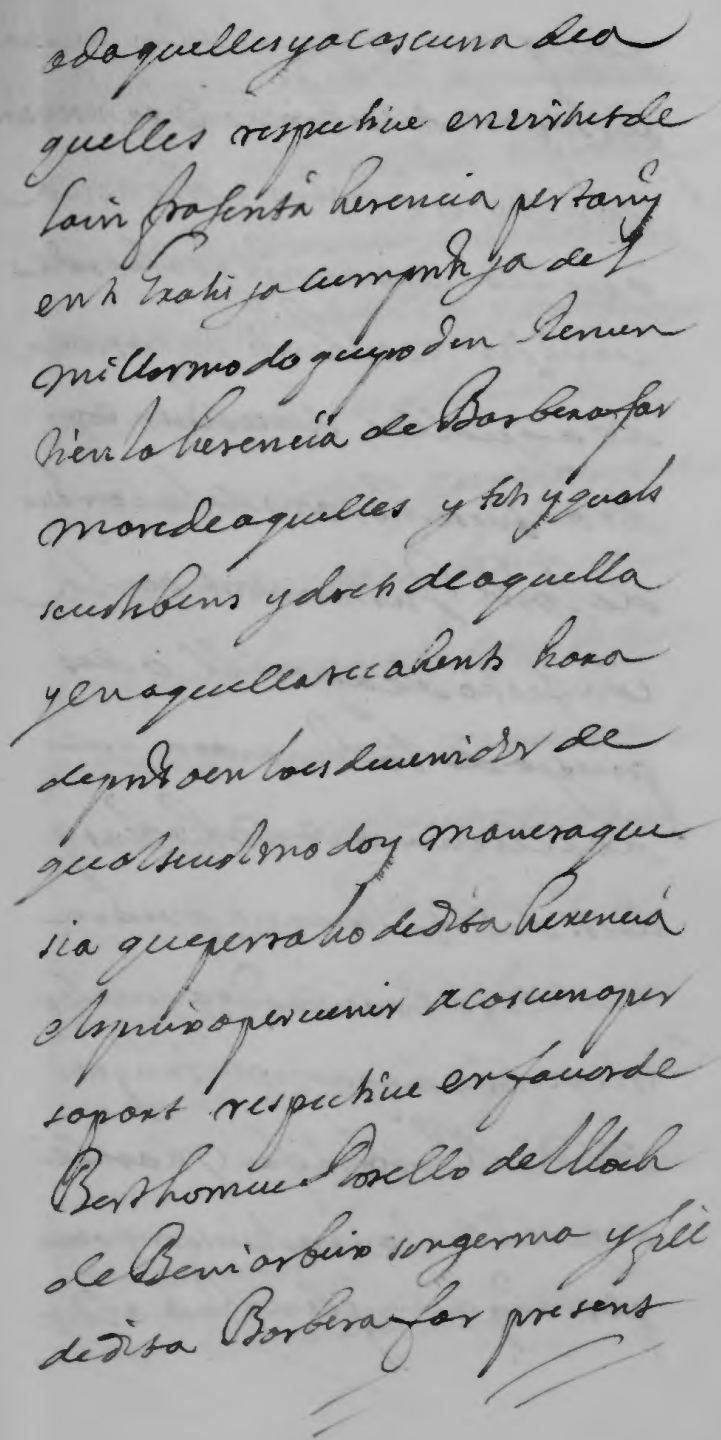 a daquelles y a cascuna de a
quelles respective en virtut de
la infrasenta herencia pertany
ents
millor modo que poden renun
tien la herencia de Barbera far
mare de aquelles y tots y quals
sevols bens y drets de aquella
y en aquella recahents hara
de pnt o en lo esdevenidor de
qualsevol modo y manera que
sia que per raho de dita herencia
els puixa pervenir a cascuna per
sa part respective en favor de
Berthomeu Rosello del lloch
de Beniarbeix son germa y fill
de dita Barbera far present